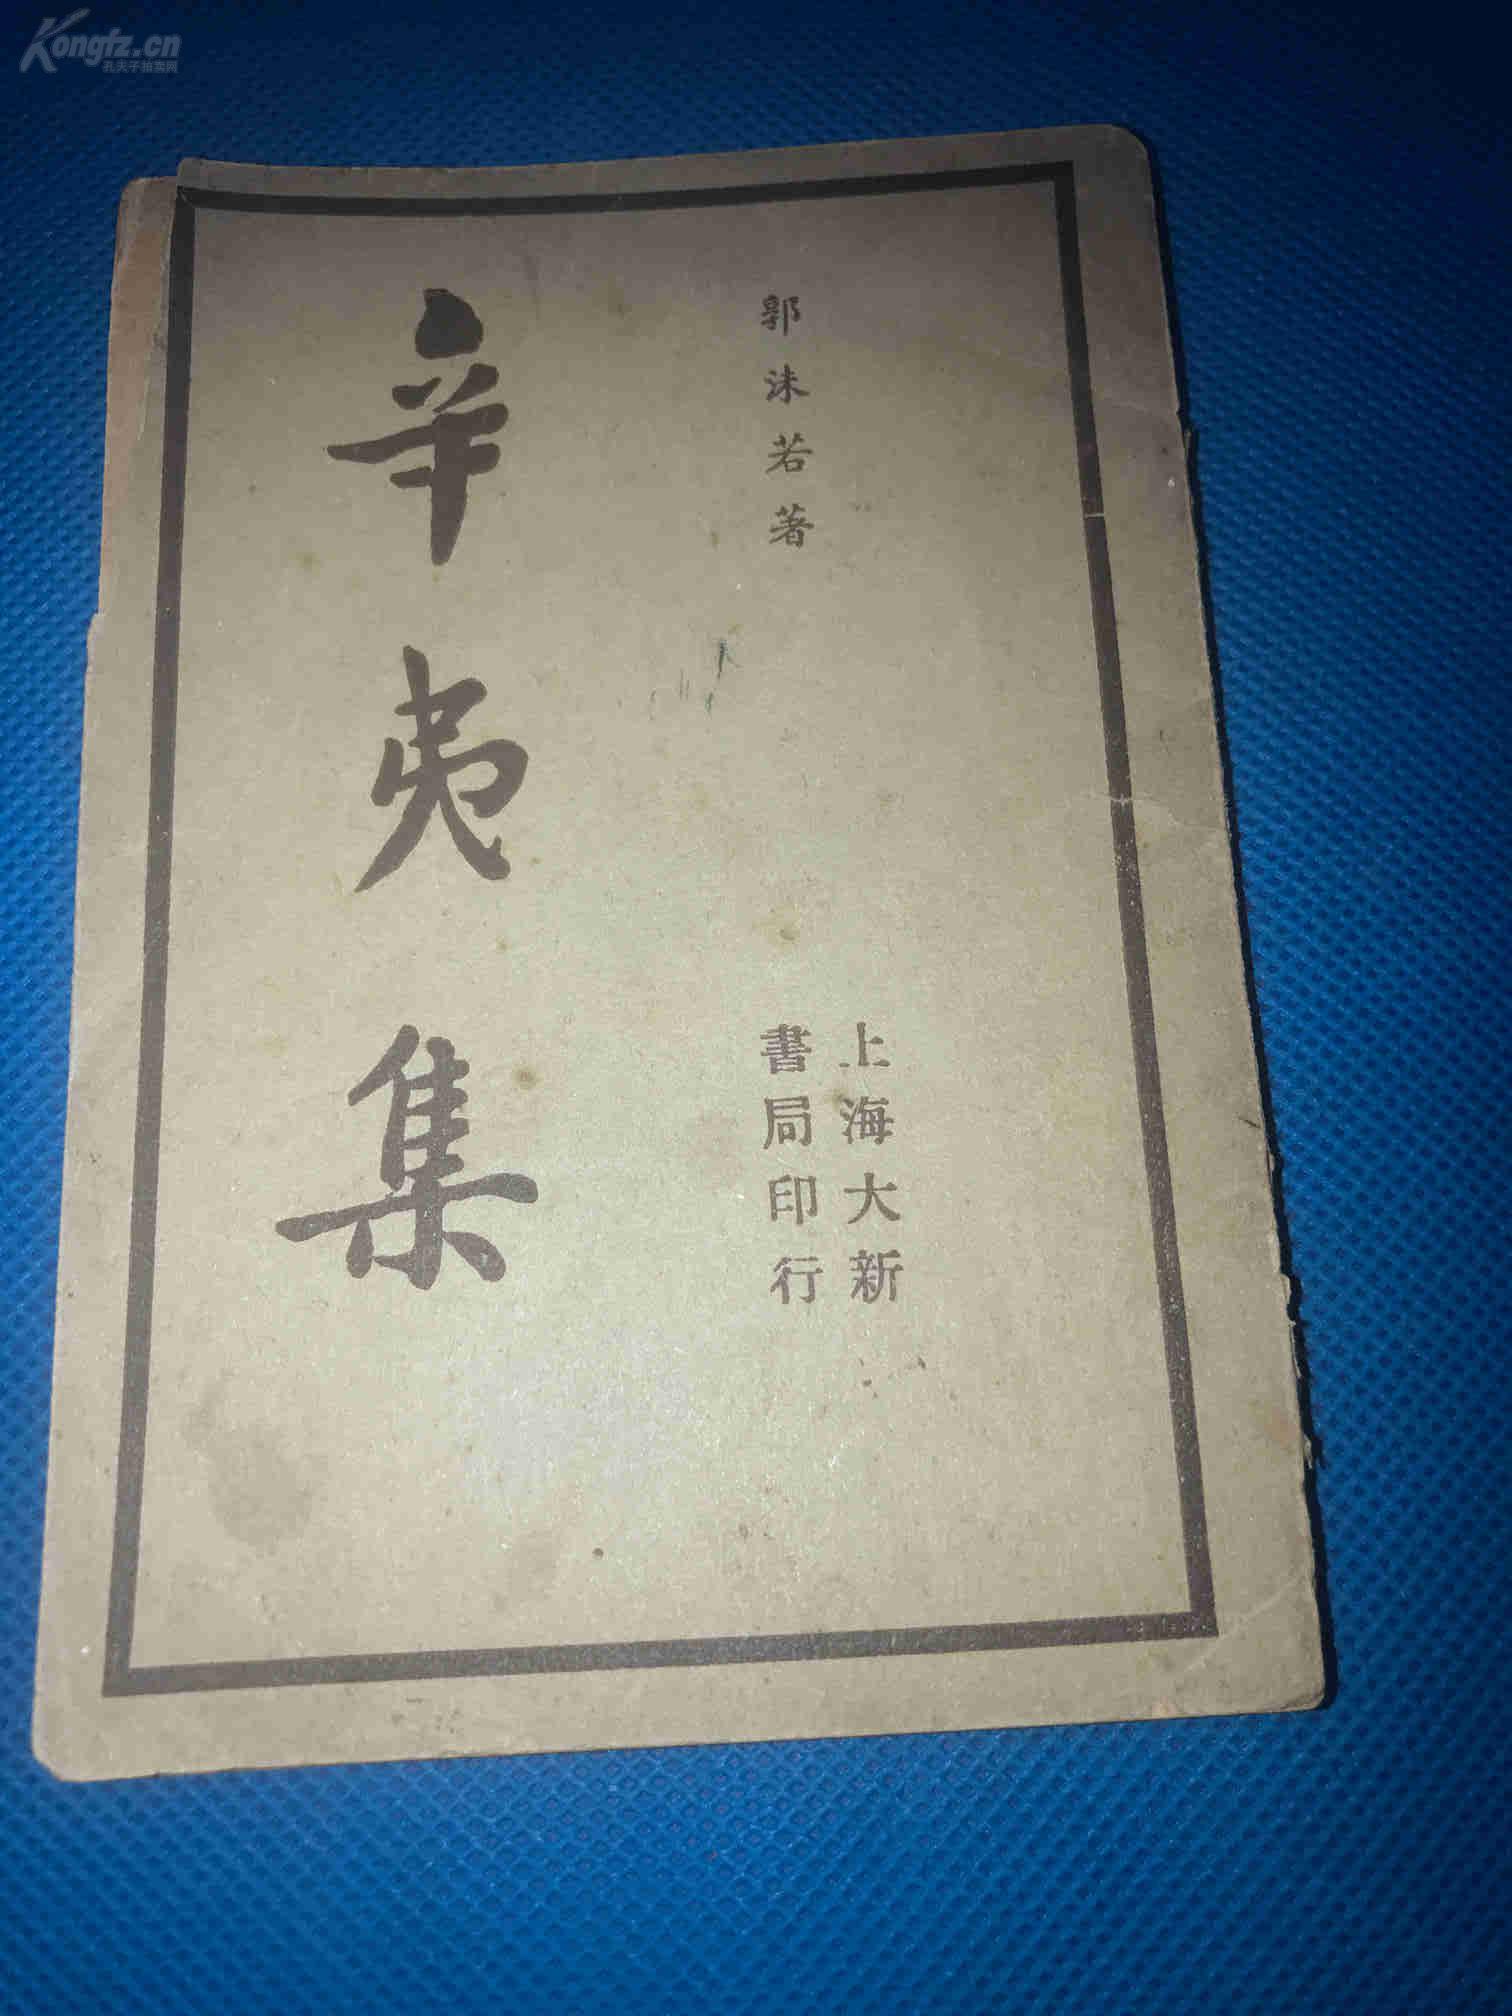 Kongfz.cn
孔夫子拍卖网
郭沫若著
上海大新
書局印行
辛夷集